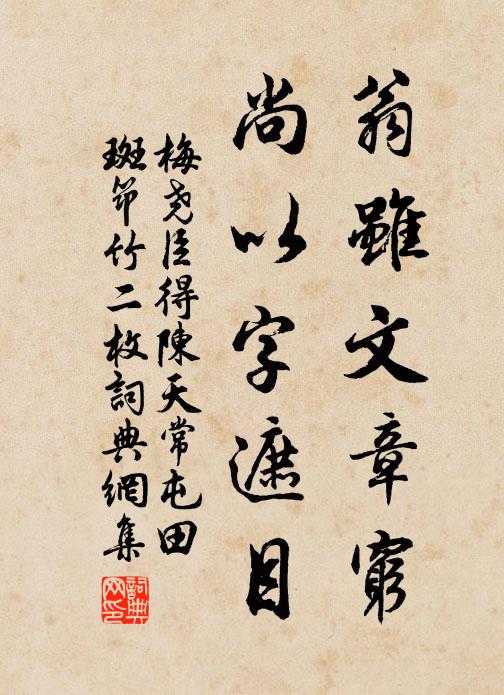 翁雖文章窮
尚以字遮目
梅堯臣得陳天常屯田
斑笻竹二枚詞典網集
詞典網印